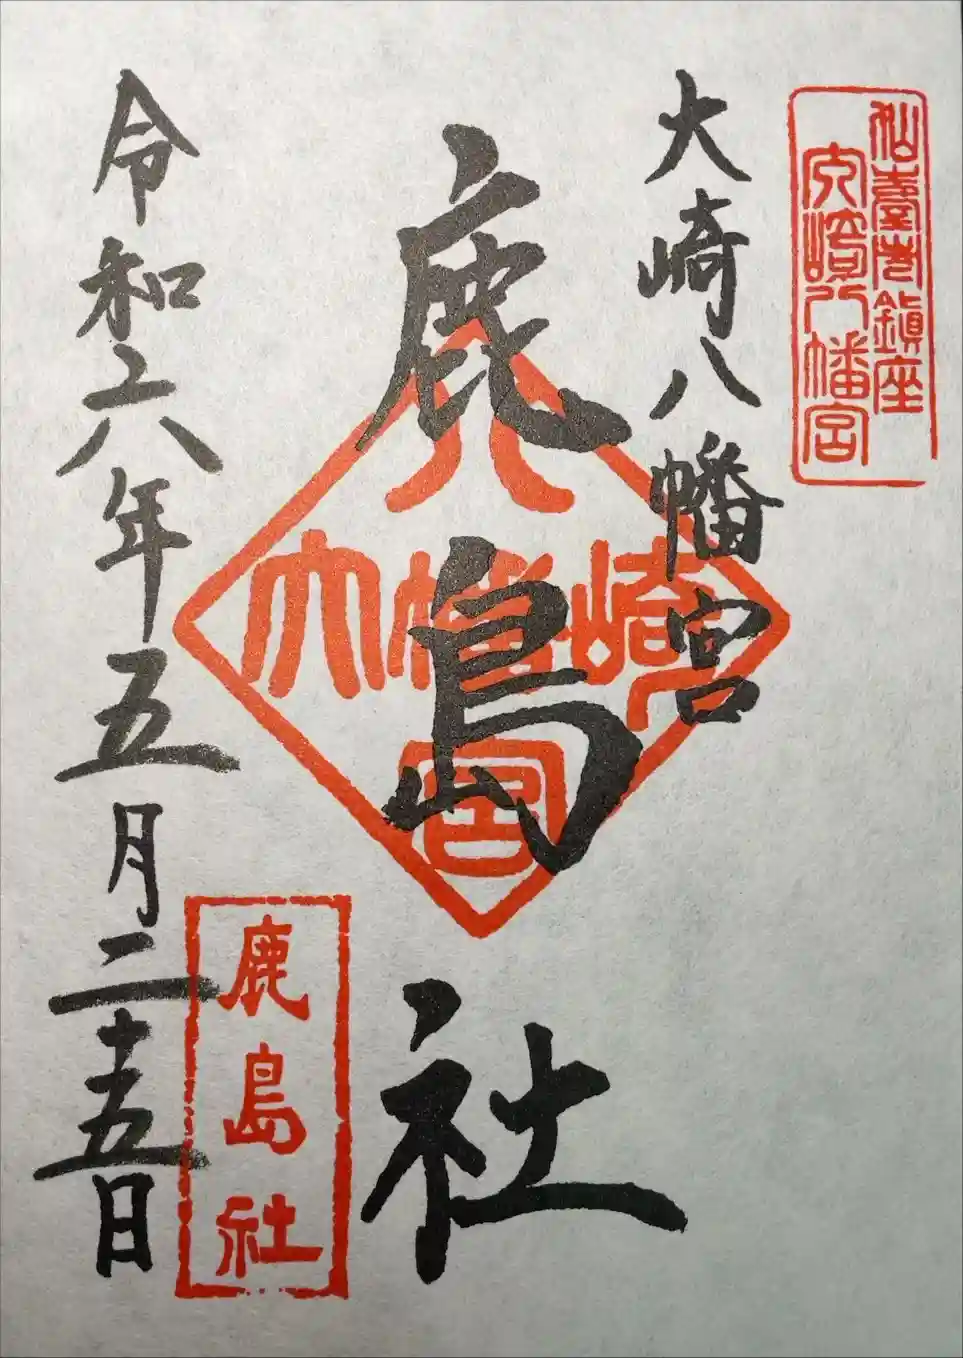 仙臺巷鎮座
大崎八幡宮
大崎八幡宮
鹿島社
八
大幡崎
宮
鹿島社
令和六年五月二十五日